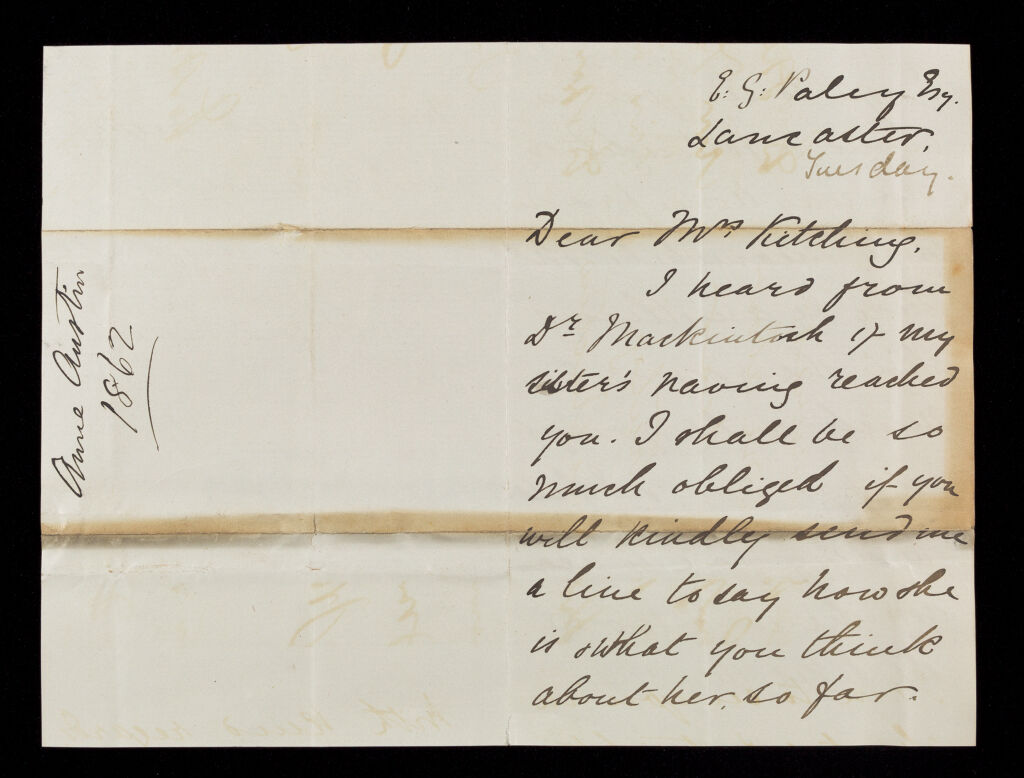 E: G: Paley Esq.
Lancaster.
Tuesday.
Dear Mrs Kitching.
I heard from
Dr Mackintosh of my
sister's having reached
you. I shall be so
much obliged if you
will kindly send me
a line to say how she
is & what you think
about her, so far.
Anne Austin
1862
With kind regards